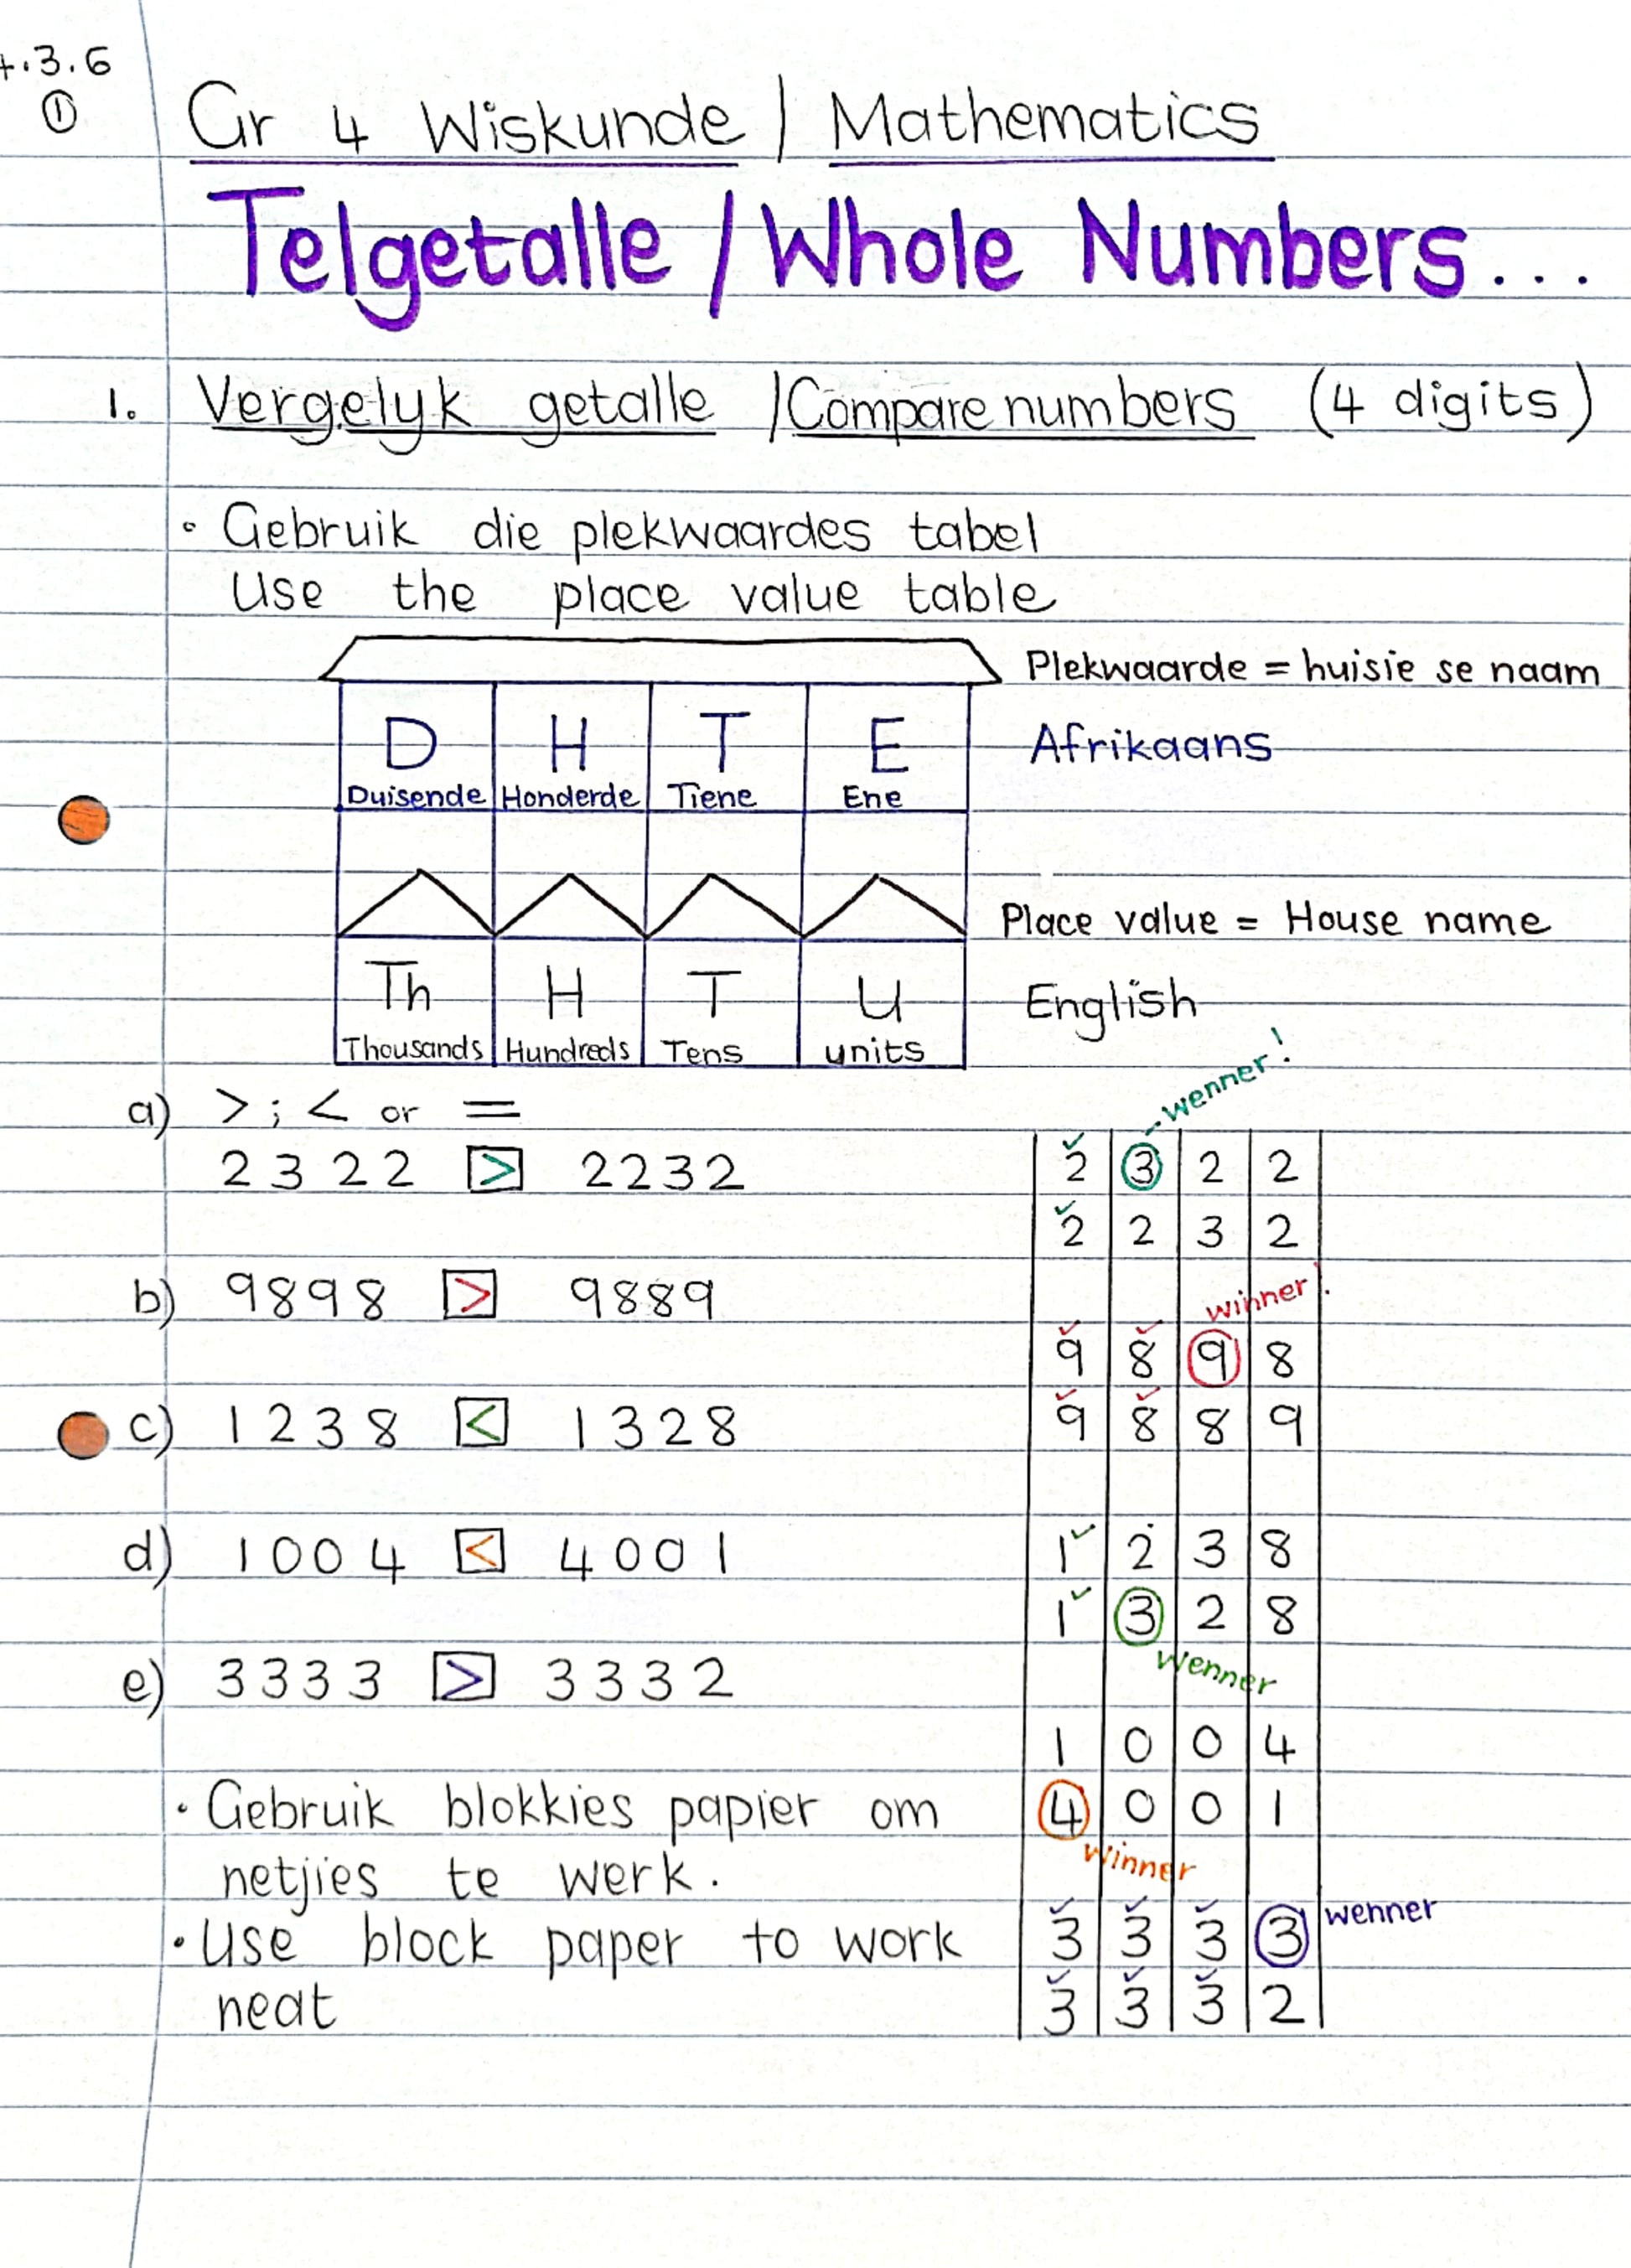 4.3.6
①
Gr 4 Wiskunde / Mathematics
Telgetalle / Whole Numbers...
1. Vergelyk getalle / Compare numbers (4 digits)
• Gebruik die plekwaardes tabel
Use the place value table
Plekwaarde = huisie se naam
D H T E Afrikaans
Duisende Honderde Tiene Ene
Place value = House name
Th H T U English
Thousands Hundreds Tens units
a) > ; < or =
2322 > 2232
b) 9898 > 9889
c) 1238 < 1328
d) 1004 < 4001
e) 3333 > 3332
• Gebruik blokkies papier om
netjies te werk.
• Use block paper to work
neat
wenner!
2 3 2 2
2 2 3 2
winner!
9 8 9 8
9 8 8 9
1 2 3 8
1 3 2 8
wenner
1 0 0 4
4 0 0 1
winner
3 3 3 3 wenner
3 3 3 2